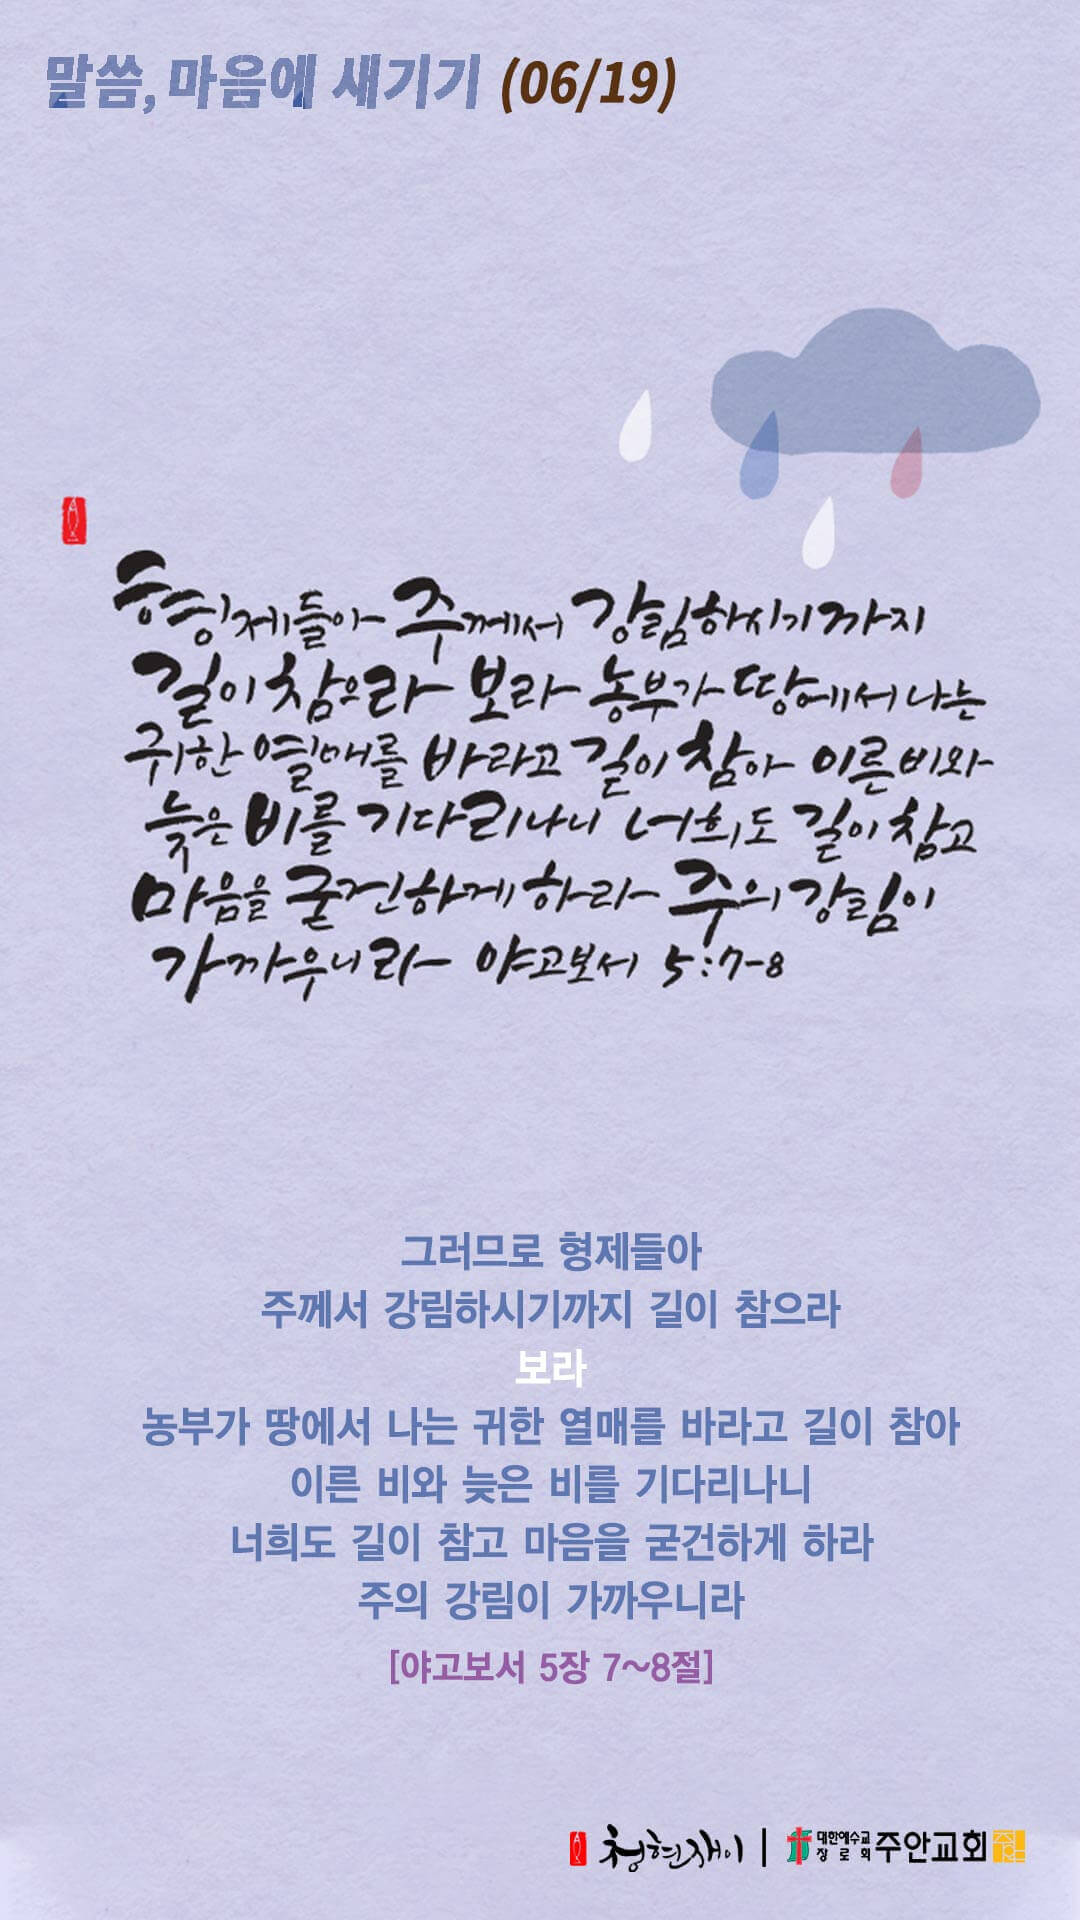 말씀, 마음에 새기기 (06/19)
형제들아 주께서 강림하시기까지
길이 참으라 보라 농부가 땅에서 나는
귀한 열매를 바라고 길이 참아 이른 비와
늦은 비를 기다리나니 너희도 길이 참고
마음을 굳건하게 하라 주의 강림이
가까우니라 야고보서 5:7-8
그러므로 형제들아
주께서 강림하시기까지 길이 참으라
보라
농부가 땅에서 나는 귀한 열매를 바라고 길이 참아
이른 비와 늦은 비를 기다리나니
너희도 길이 참고 마음을 굳건하게 하라
주의 강림이 가까우니라
[야고보서 5장 7~8절]
청현재이 | 대한예수교 장로회 주안교회